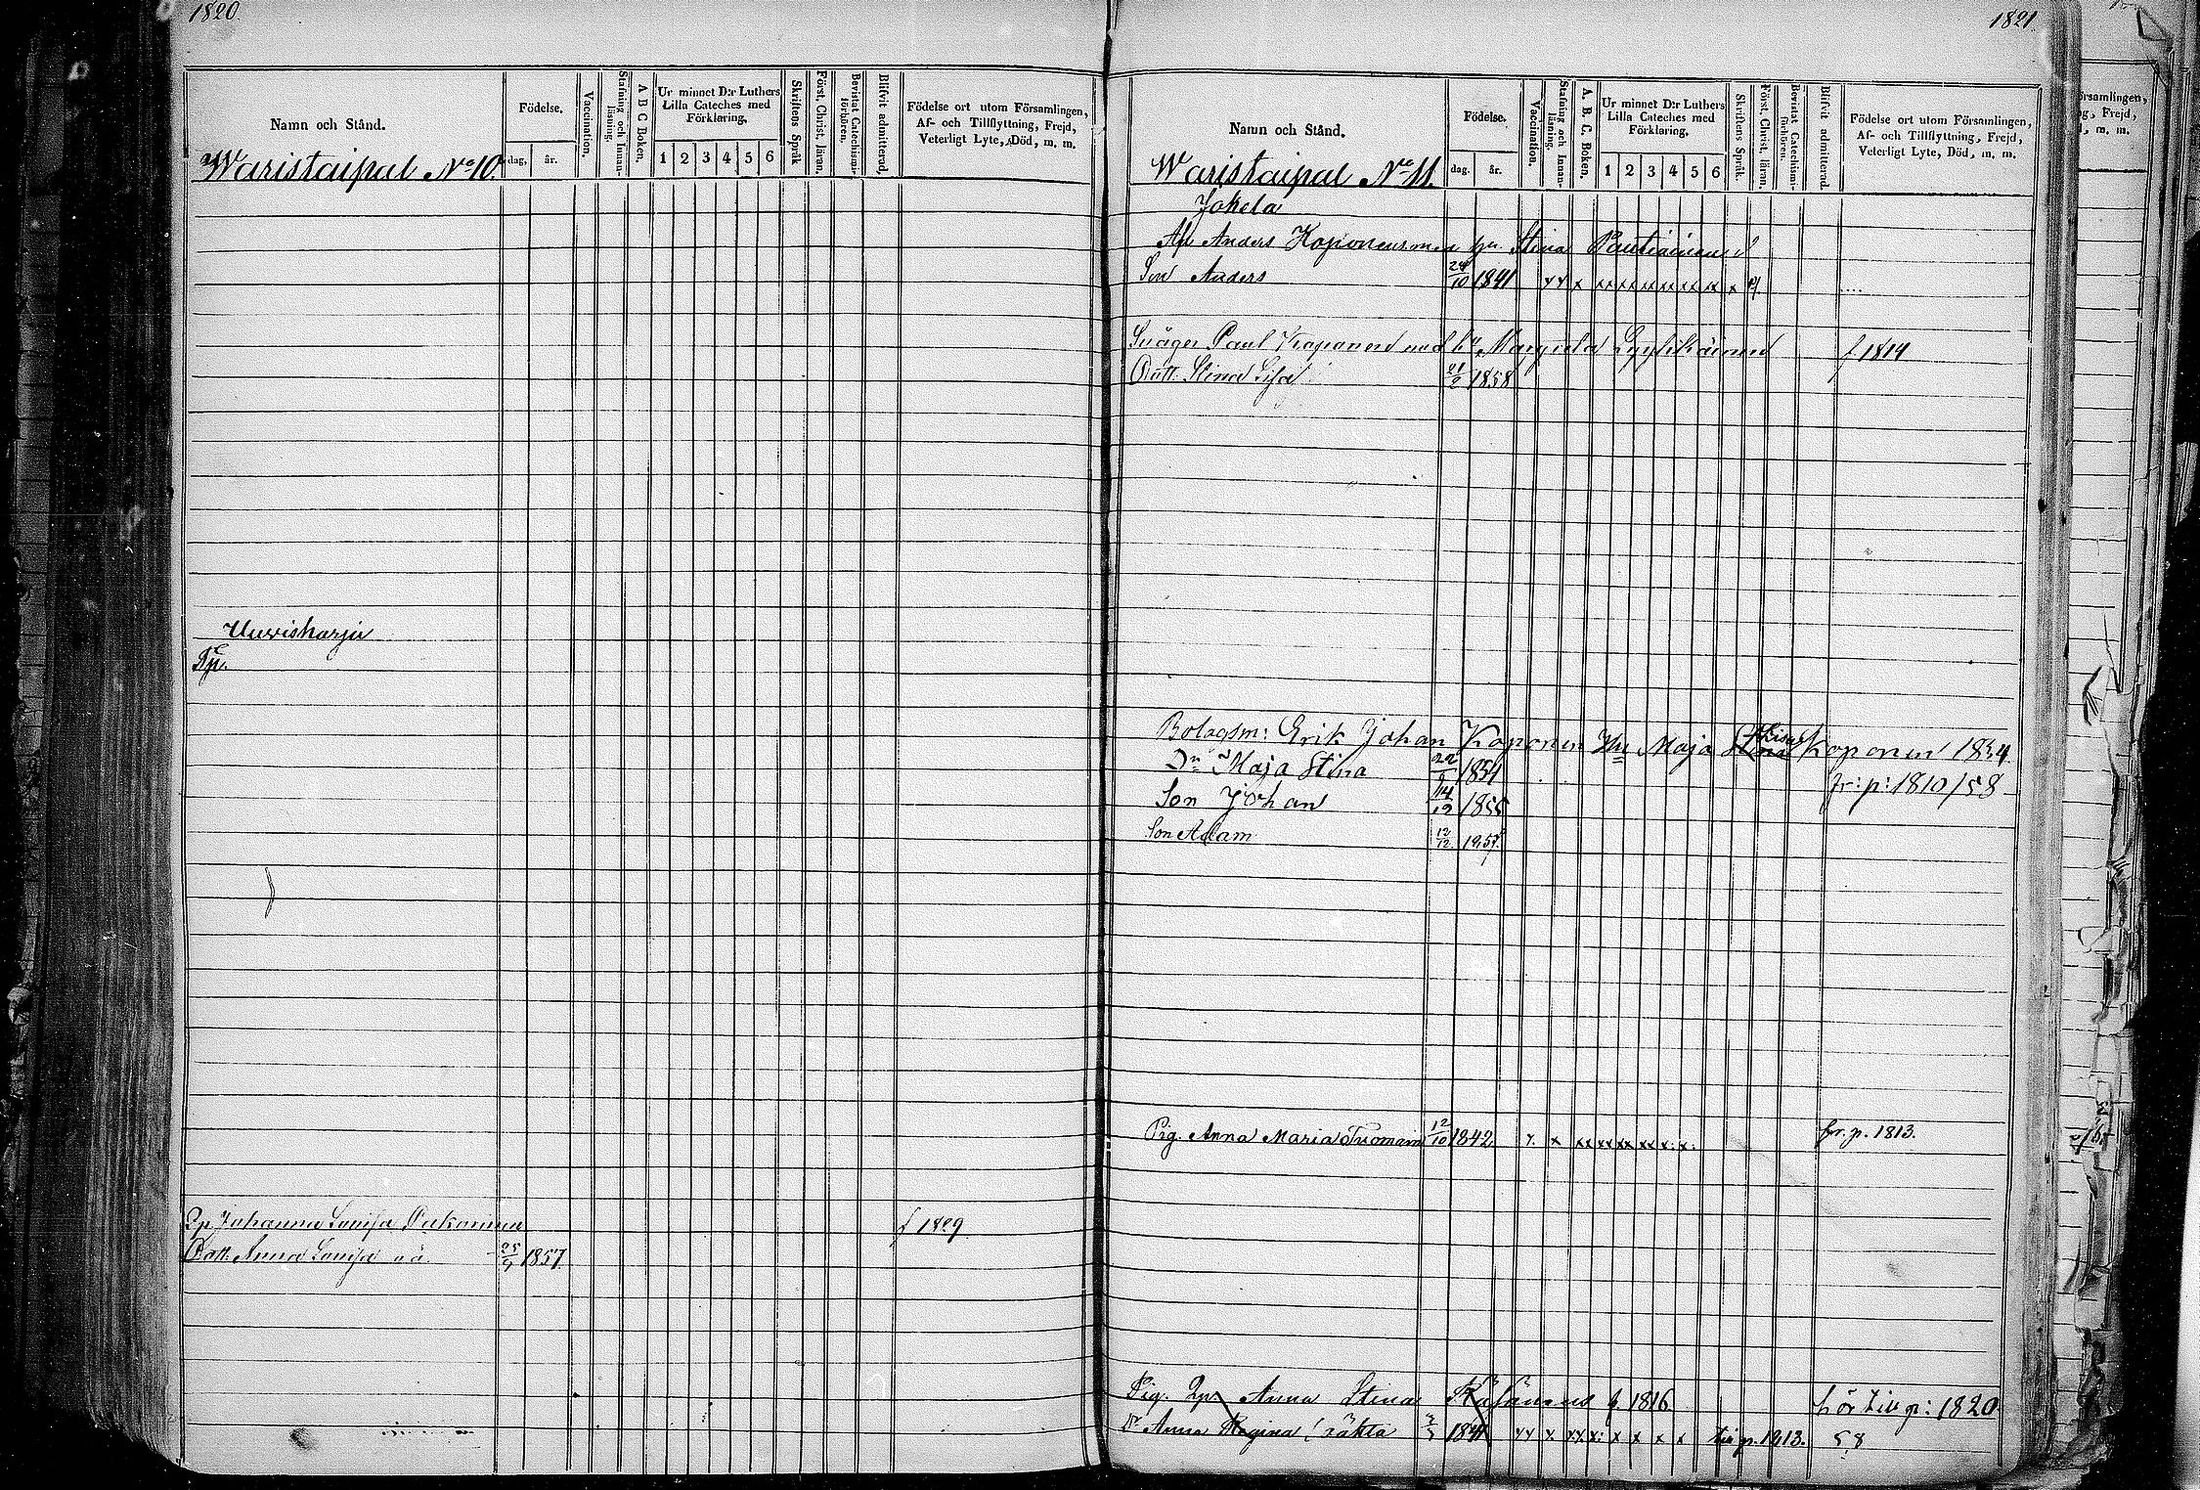 1820.
Namn och Stånd.
Födelse.
dag, år.
Vaccination.
Stafning och Innan-läsning.
A B C Boken.
Ur minnet D:r Luthers Lilla Cateches med Förklaring,
1 2 3 4 5 6
Skriftens Språk
Först. Christ. läran.
Bevistat Catechismi-förhören.
Blifvit admitterad,
Födelse ort utom Församlingen,
Af- och Tillflyttning, Frejd,
Veterligt Lyte, Död, m. m.
Waristaipal No 10.
Uuvisharju
Johanna Lovisa f 1829
Dott. Anna Lovisa o ä 1857
1821
Namn och Stånd.
Födelse.
dag. år.
Vaccination.
Stafning och Innan-läsning.
A. B. C. Boken.
Ur minnet D:r Luthers Lilla Cateches med Förklaring.
1 2 3 4 5 6
Skriftens Språk.
Först. Christ. läran.
Bevistat Catechismi-förhören.
Blifvit admitterad.
Födelse ort utom Församlingen,
Af- och Tillflyttning, Frejd,
Veterligt Lyte, Död, m. m.
Waristaipal No 11.
Jokela
Afl Anders Koponens med hu. Stina Pautiainen
Son Anders 24/10 1841
Svåger Paul Koponen med hu Margreta Lyytikäinen f 1814
Dott. Stina Lisa 21/2 1858
Bolagsm: Erik Johan Koponen Hu Maja Stina Koponen 1834.
Dr Maja Stina 1851 fr: p: 1810/58
Son Johan 14/12 1855
Son Adam 12/12 1857
Pig. Anna Maria 12/10 1842 fr. p. 1813.
Pig. Anna Stina f. 1816 hör till p: 1820
Dr Anna Regina oäkta 1841 till p. 1813. 58